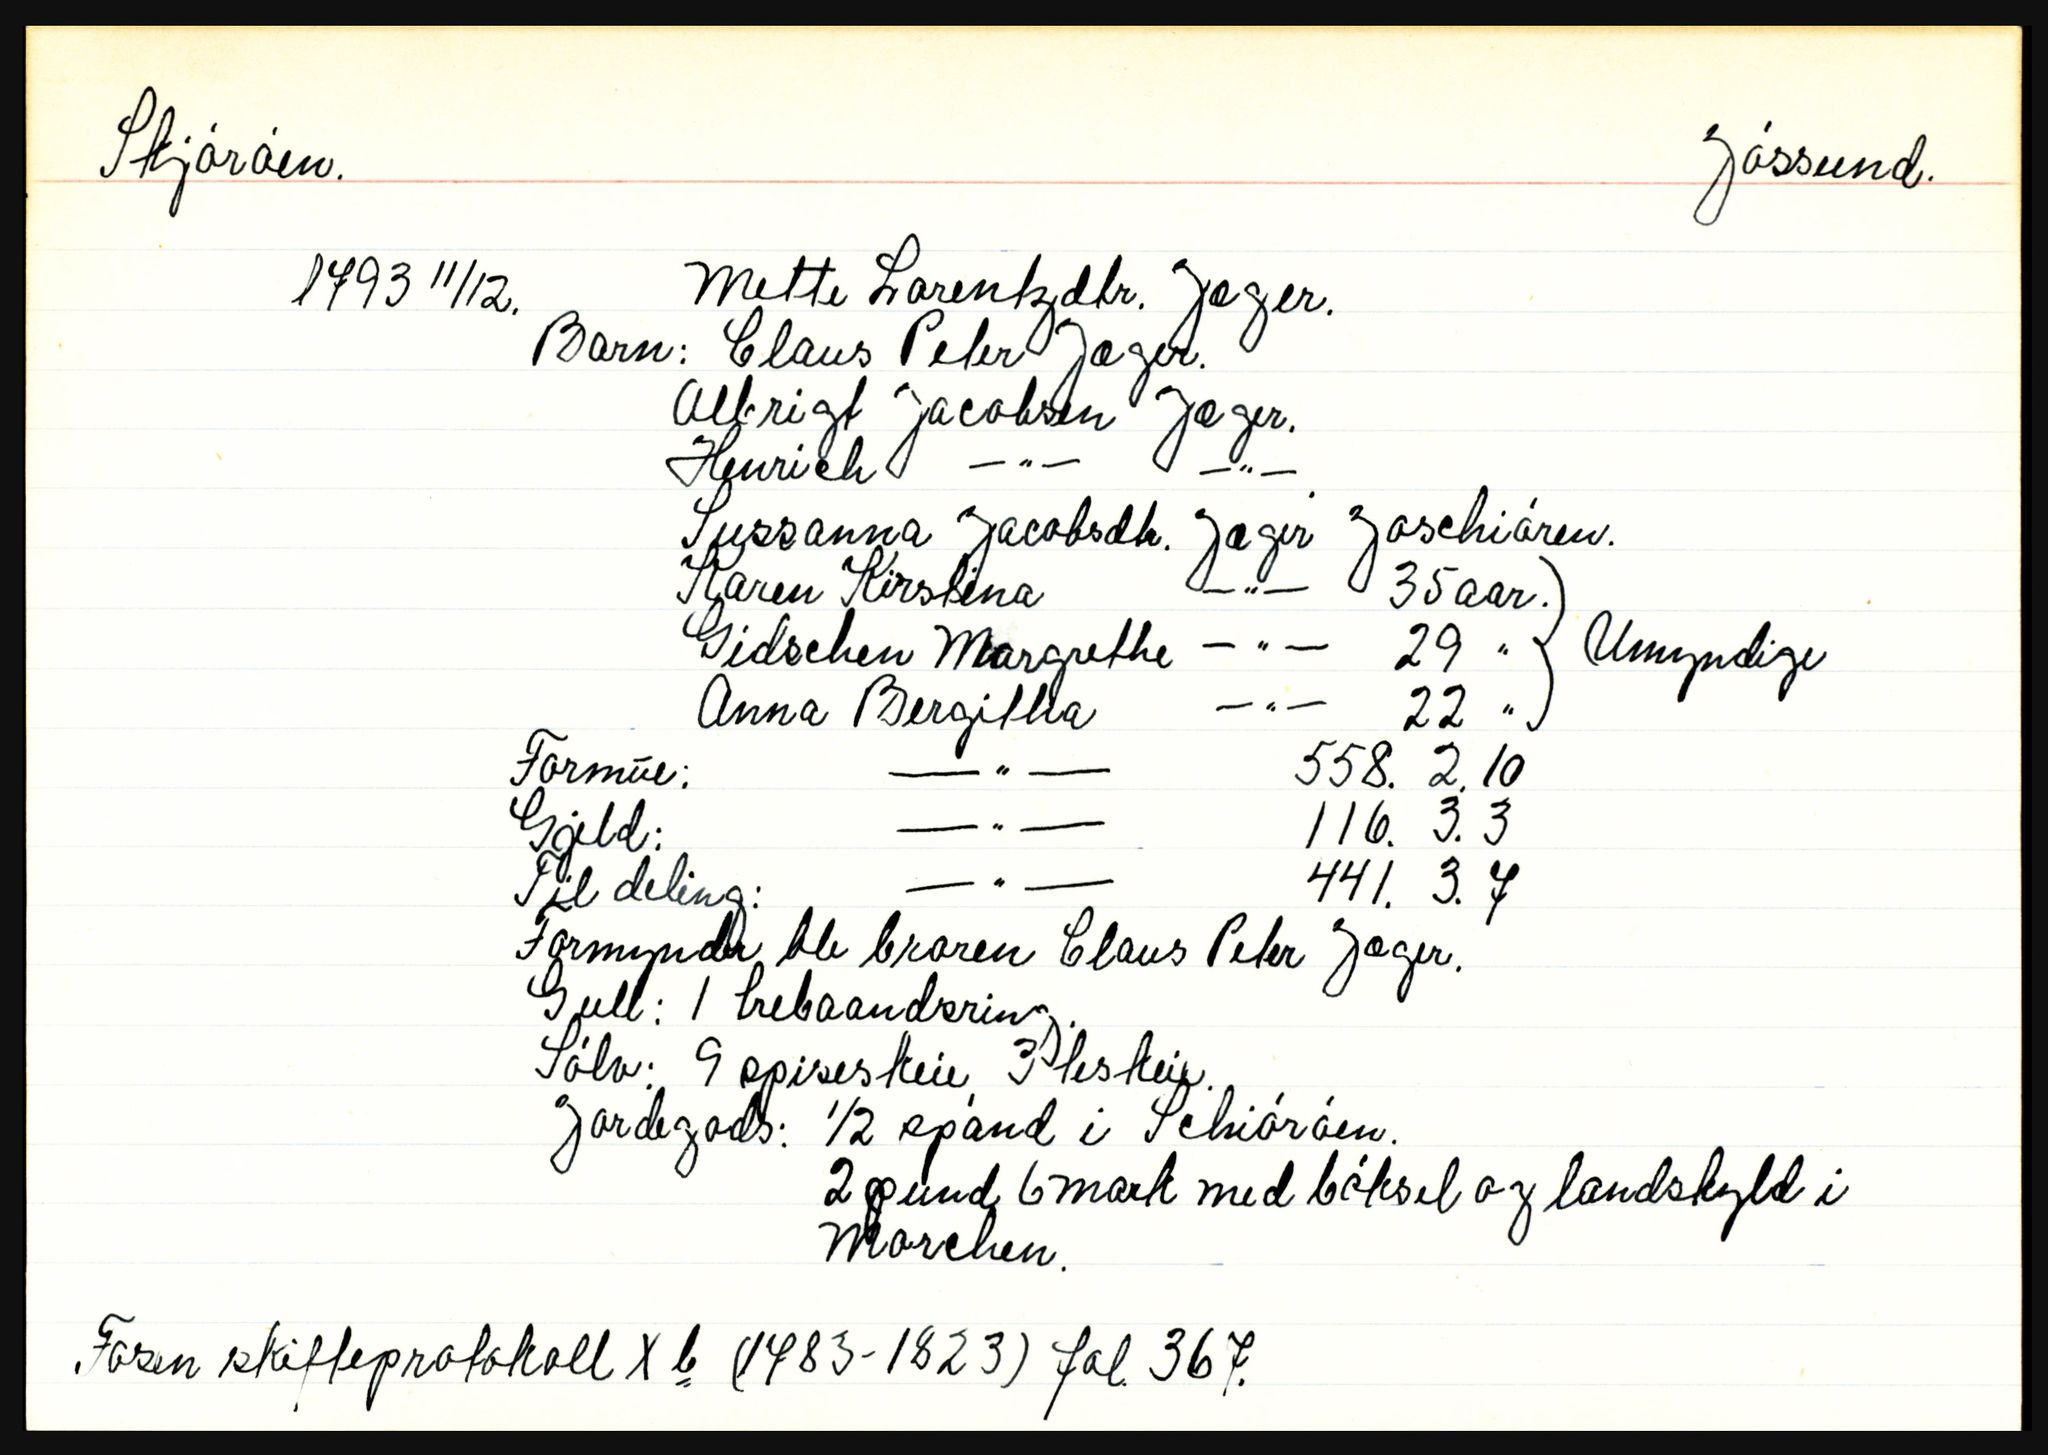 Skjóróen. Jóssund.
1793 11/12. Mette Lorentzdtr. Jæger.
Barn: Claus Peter Jæger.
Albrigt Jacobsen Jæger.
Henrich —"— —"—
Sussanna Jacobsdtr. Jæger Joschióren.
Karen Kirstina —"— 35 aar.
Gidschen Margrethe —"— 29 " Umyndige
Anna Bergitha —"— 22 "
Formūe: —"— 558. 2. 10
Gjeld: —"— 116. 3. 3
Til deling: —"— 441. 3. 7
Formynder ble broren Claus Peter Jæger.
Gull: 1 trebaandsring.
Sólv: 9 spiseskeie 3 teskeie.
Jordegods: 1/2 spand i Schióróen.
2 pund 6 mark med bóksel og landskyld i
Morchen.
Fosen skifteprotokoll X b (1783-1823) fol. 367.